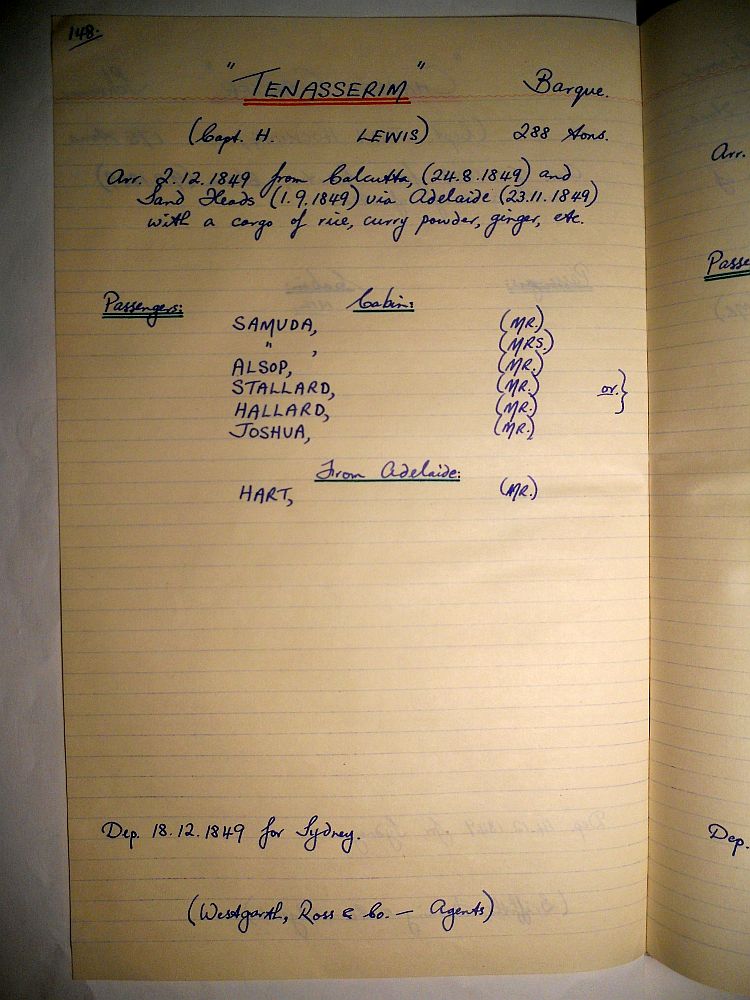 148.
"TENASSERIM" Barque.
(Capt. H. LEWIS) 288 tons.
Arr. 2.12.1849 from Calcutta, (24.8.1849) and
Sand Heads (1.9.1849) via Adelaide (23.11.1849)
with a cargo of rice, curry powder, ginger, etc.
Passengers: Cabin:
SAMUDA, (MR.)
" , (MRS.)
ALSOP, (MR.)
STALLARD, (MR.) or.}
HALLARD, (MR.)
JOSHUA, (MR.)
From Adelaide:
HART, (MR.)
Dep. 18.12.1849 for Sydney.
(Westgarth, Ross & Co. — Agents)
Arr.
Dep.